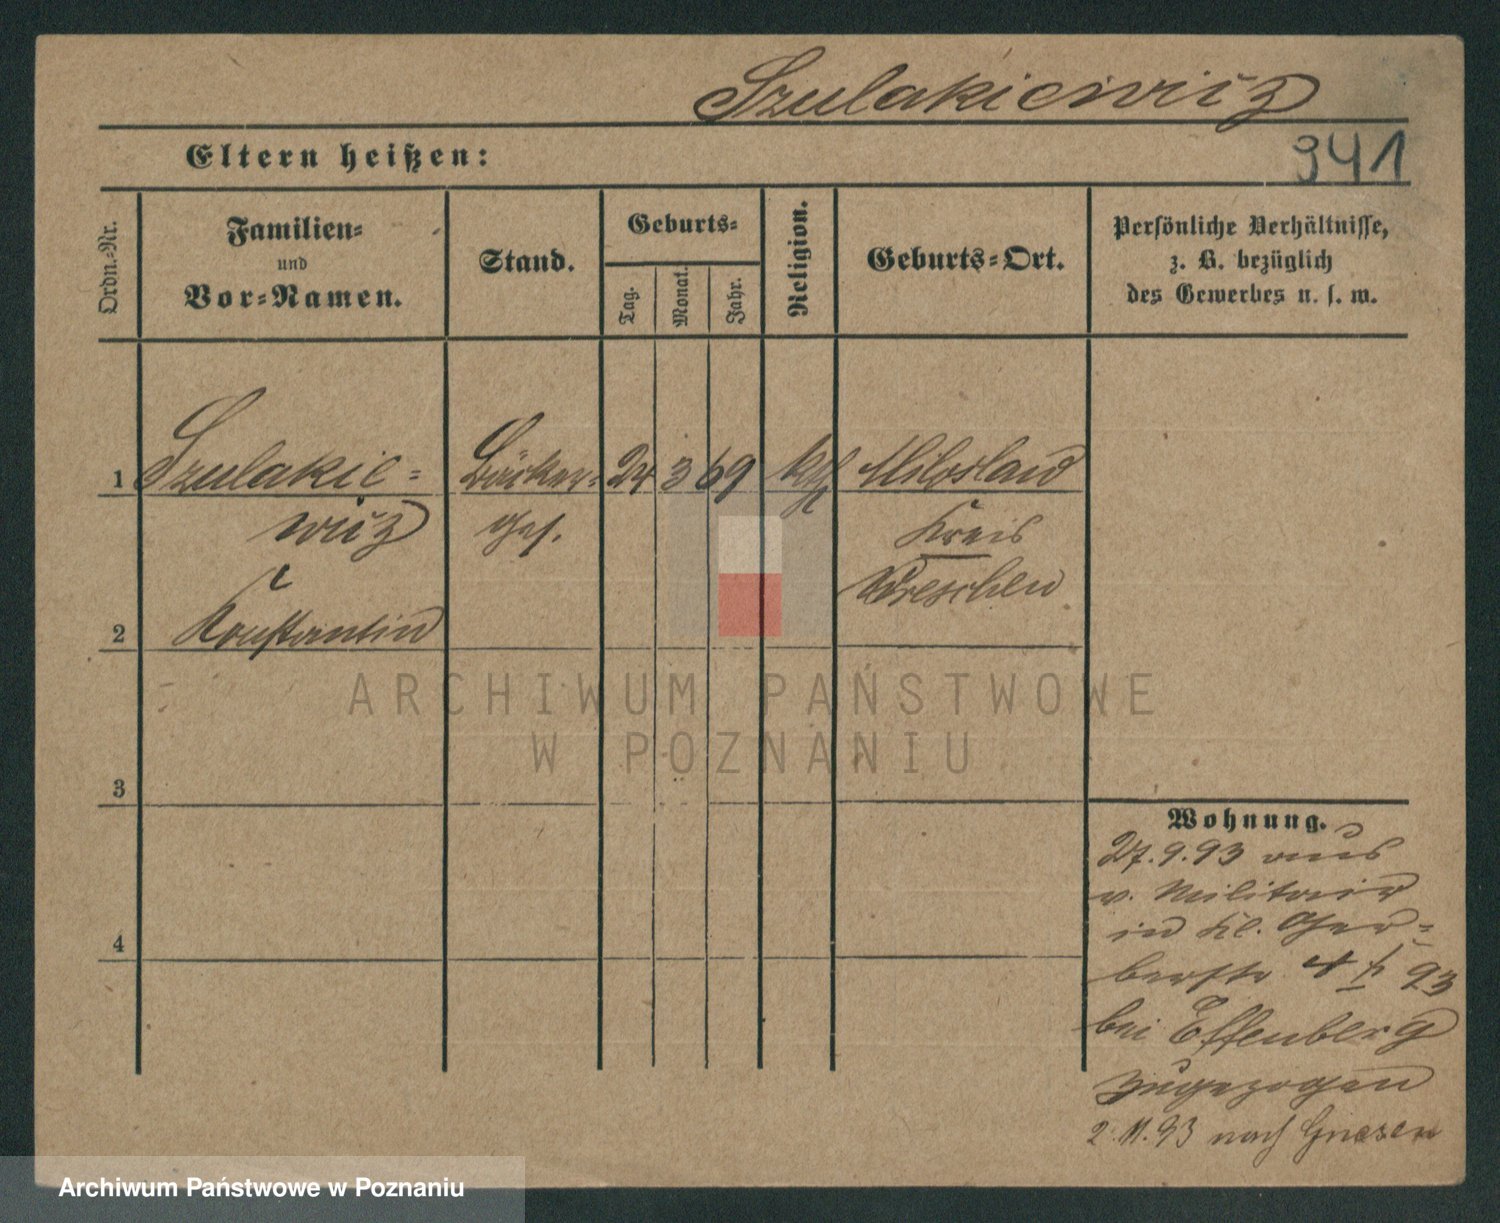 Szulakiewicz
941
Eltern heißen:
Ordn.-Nr.
Familien-
und
Vor-Namen.
Stand.
Geburts-
Tag.
Monat.
Jahr.
Religion.
Geburts-Ort.
Persönliche Verhältnisse,
z. B. bezüglich
des Gewerbes u. s. w.
1 Szulakie= Bäcker= 24 3 69 kth Miloslaw
wicz Ges. Kreis
Wreschen
2 Konstantin
3
4
Wohnung.
27.9.93 aus
v. Militair
in Kl. Ger=
berstr 4 93
bei Effenberg
zugezogen
2.11.93 nach Gnesen
ARCHIWUM PAŃSTWOWE
W POZNANIU
Archiwum Państwowe w Poznaniu